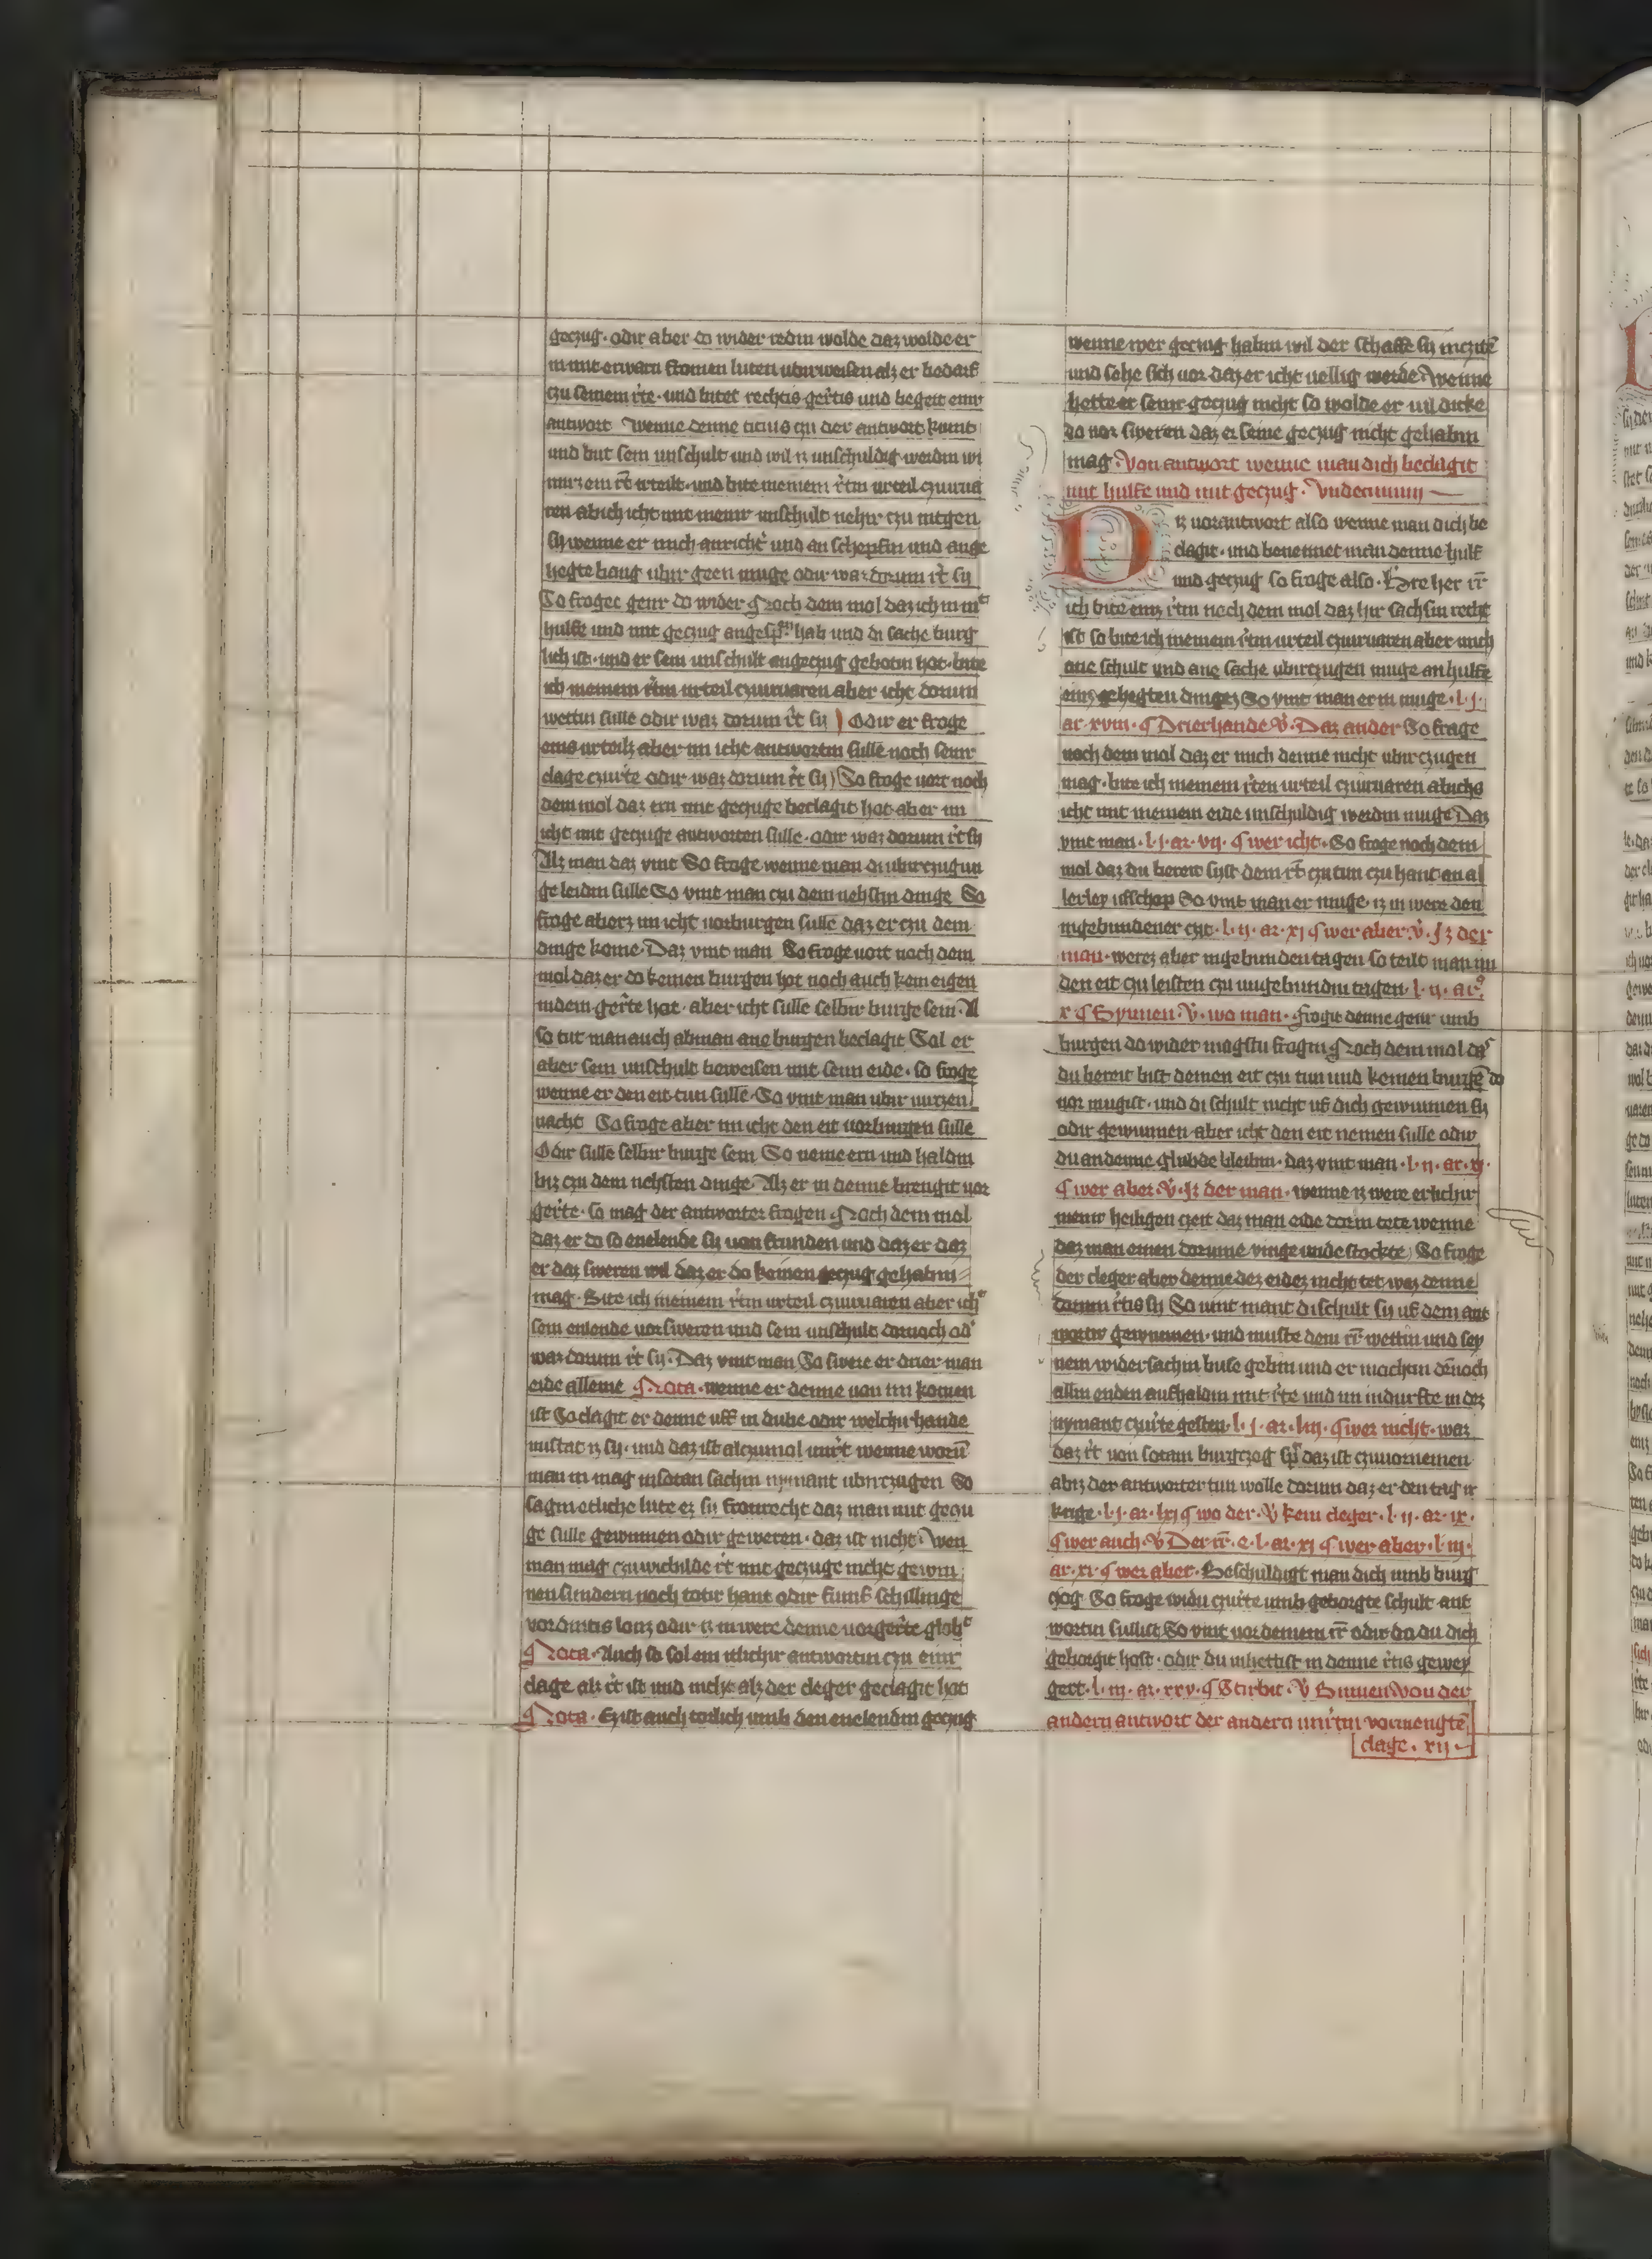 geczug · odir aber do wider redin wolde daz wolde er
in mit erwarn fromen luten ubirweisen alz er bedarf
czu seinem r̄te · und butet rechtis ger̄tis und begert einir
antwort Wenne denne titius czu der antwort kumt
und but sein unschult und wil is unschuldig werdin wi
im ein r̄t irteilt · und bite meinem r̄tin urteil czuirua
ren ab ich icht mit meinir unschult nehir czu intgen
sy wenne er mich anricht und an schepfin und ange
hegte bang ubir geen muge odir waz dorum r̄t sy
So froget genir do wider Noch dem mol daz ich in mit
hulfe und mit geczug angespr̄ hab und di sache burg
lich ist · und er sein unschult angeczug gebotin hot · bite
ich meinem r̄tin urteil czuiruaren aber icht dorum
wettin sulle odir waz dorum r̄t sy ) Odir er froge
eins urteilz aber im icht antwortin sulle noch seinr
clage czu r̄te odir waz dorum r̄t sy ) So froge uort noch
dem mol daz ern mit geczuge beclagit hot aber im
icht mit geczuge antworten sulle · odir waz dorum r̄t sy
Alz man daz vint So froge wenne man di ubirczugun
ge leidin sulle So vint man czu dem nehstin dinge So
froge aberz im icht uorburgen sulle daz er czu dem
dinge kome · Daz vint man So froge uort noch dem
mol daz er do keinen burgen hot noch auch kein eigen
in dem ger̄te hot · aber icht sulle selbir burge sein · Al
so tut man auch ab man ane burgen beclagit Sal er
aber sein unschult beweisen mit sein eide · so froge
wenne er den eit tun sulle · So vint man ubir uirczen
nacht So froge aber im icht den eit uorburgen sulle
Odir sulle selbir burge sein So neme ern und haldin
biz czu dem nehsten dinge · Alz er in denne brengit uor
ger̄te · so mag der antworter frogen Noch dem mol
daz er do so enelende sy uon frunden und daz er daz
er daz sweren wil daz er do keinen geczug gehabin
mag · Bite ich meinem r̄tin urteil czuiruaren aber icht
sein enlende uorsweren und sein unschult dornoch od'
waz dorum r̄t sy · Daz vint man So swere er drier man
eide alleine Nota · wenne er denne uon im komen
ist So clagit er denne uff in dube odir welchir hande
mistat is sy · und daz ist alczumol unr̄t wenne worū
man in mag in sotan sachin nymant ubirczugen So
sagin etliche lute ez sy fronrecht daz man mit geczu
ge sulle gewinnen odir geweren · daz ist nicht · Wen
man mag czu wichilde r̄t mit geczuge nicht gewin
nen sundern noch totir hant odir funf schillinge
vordintis lonz odir is in were denne uor ger̄te globt
Nota · Auch so sol ein itlichir antwortin czu einir
clage alz r̄t ist und nicht alz der cleger geclagit hot
Nota · Ez ist auch torlich umb den enelendin geczug
wenne wer geczug habin wil der schaffe sy inczitē
und sehe sich uor daz er icht uellig werde · Wenne
hette er seinr geczug nicht so wolde er uil dicke
do uor sweren daz er seine geczug nicht gehabin
mag · Von antwort wenne man dich beclagit
mit hulfe und mit geczug · Vndecimum
Diz uorantwort also wenne man dich be
clagit · und benennet man denne hulf
und geczug so froge also · Hore her r̄r
ich bite einz r̄tin noch dem mol daz hir sachsin recht
ist so bite ich meinem r̄tin urteil czuiruaren aber mich
ane schult und ane sache ubirczugen muge an hulfe
einz gehegten dingez So vint man er in muge · l · j ·
ar · xviii · ¶ Drierhande · V̄ · Daz ander So frage
noch dem mol daz er mich denne nicht ubirczugen
mag · bite ich meinem r̄ten urteil czuiruaren ab ichs
icht mit meinem eide unschuldig werdin muge Daz
vint man · l · j · ar · vij · ¶ wer icht · So froge noch dem
mol daz du bereit syst dem r̄t czu tun czu hant an al
lerley ufschop So vint man er muge · is in were den
ingebundener czit · l · ij · ar · xj ¶ wer aber · v̄ · Iz der
man · werez aber ingebunden tagen so teilt man im
den eit czu leisten czu ungebundin tagen · l · ij · ar ·
x ¶ Bynnen · V̄ · wo man · frogit denne genir umb
burgen do wider magstu frogin Noch dem mol daz
du bereit bist deinen eit czu tun und keinen burgē do
uor mugist · und di schult nicht uf dich gewunnen sy
odir gewunnen aber icht den eit nemen sulle odir
du an denne glubde bleibin · daz vint man · l · ij · ar · xj ·
¶ wer aber · V̄ · Iz der man · wenne is were erlichir
meinr heiligen czeit daz man eide dorin tete wenne
daz man einen dorinne vinge unde stockte ) So froge
der cleger aber denne dez eidez nicht tet waz denne
dorum r̄tis sy So vint mant di schult sy uf dem ant
wortir gewunnen · und muste dem r̄r wettin und sey
nem widersachin buse gebin und er mochin dēnoch
allin enden aufhaldin mit r̄te und im indurfte in dez
nymant czu r̄te gesten · l · j · ar · liij · ¶ wer nicht · waz
daz r̄t von sotam burgczog spr̄ daz ist czuuornemen
abiz der antworter tun wolle dorum daz er den tag ir
krige · l · j · ar · lxj ¶ wo der · V̄ kein cleger · l · ij · ar · ix ·
¶ wer auch · V̄ Der r̄r · e · l · ar · xj ¶ wer aber · l · iij ·
ar · xj · ¶ wer aber · Beschuldigt man dich umb burg
czog So froge widu czu r̄te umb geborgte schult ant
wortin sullist So vint uor deinem r̄r odir do du dich
geborgit host · odir du inhettist in denne r̄tis gewey
gert · l · iij · ar · xxv · ¶ Stirbit · V̄ Binnen Von der
andern antwort der andern unr̄tin vormengtē
clage · xij ·